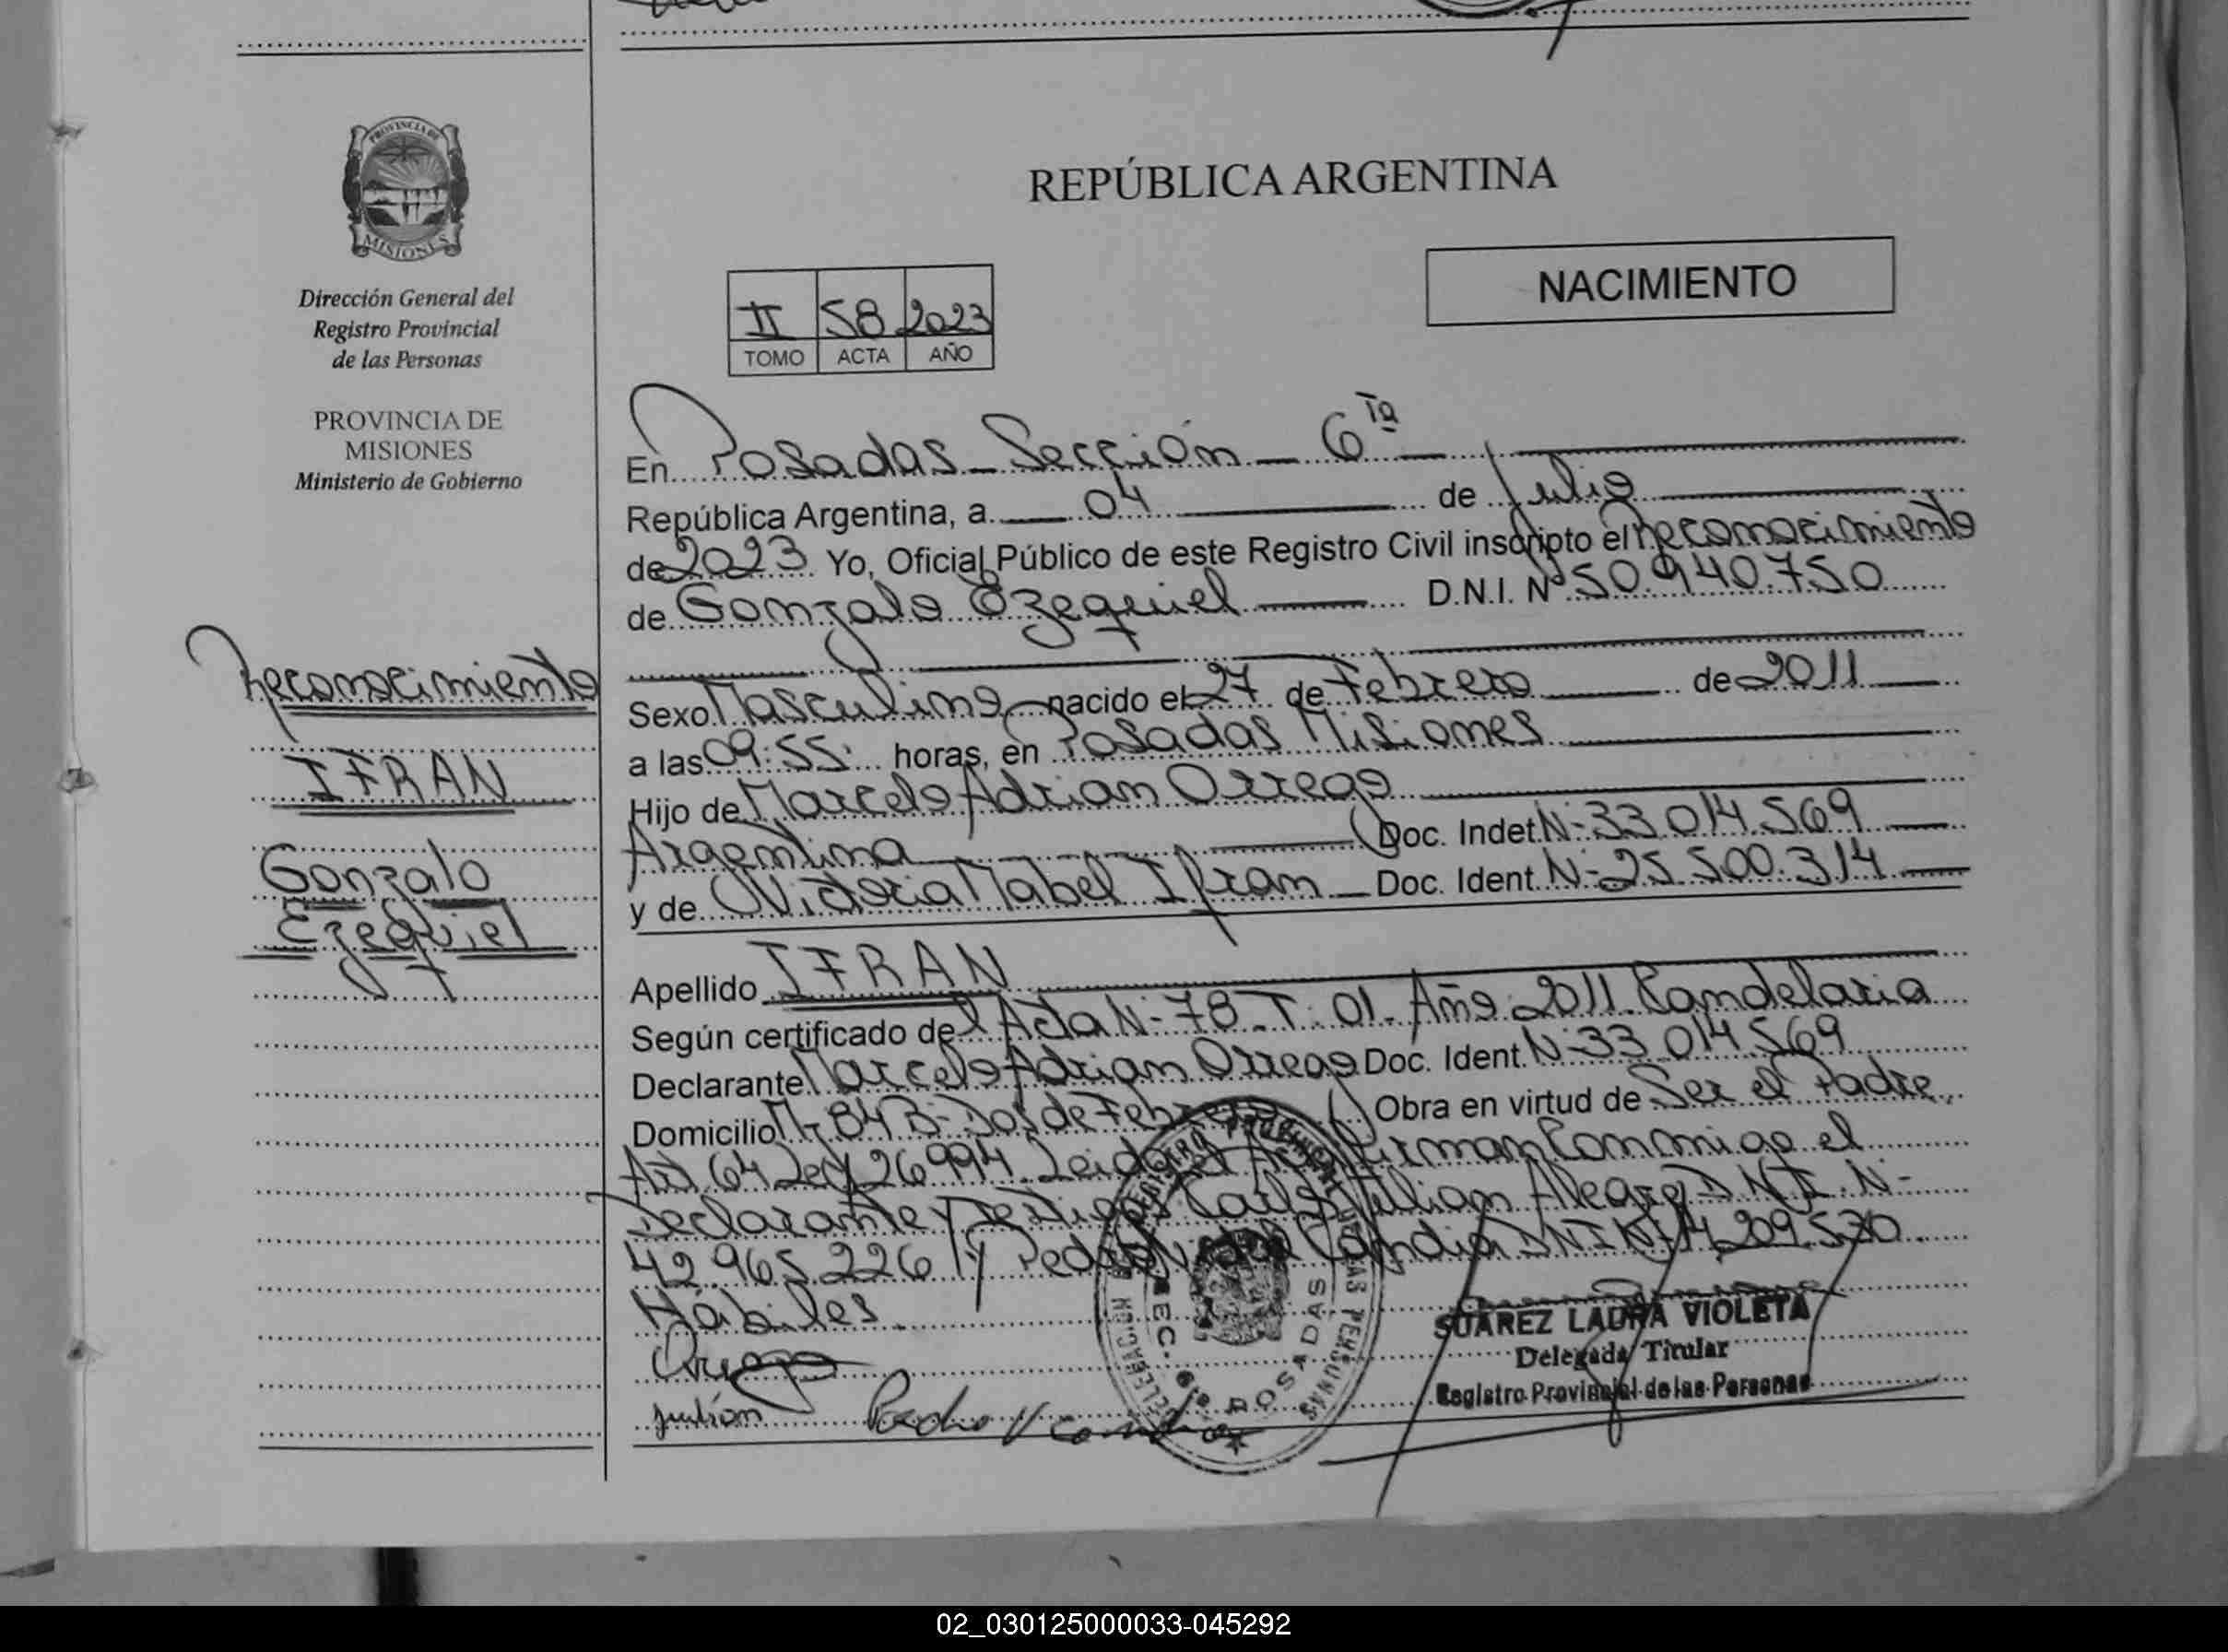 PROVINCIA DE
MISIONES
Dirección General del
Registro Provincial
de las Personas
PROVINCIA DE
MISIONES
Ministerio de Gobierno
Reconocimiento
IFRAN
Gonzalo
Ezequiel
REPÚBLICA ARGENTINA
NACIMIENTO
II 58 2023
TOMO ACTA AÑO
En Posadas - Sección - 6 ta
República Argentina, a 04 de Julio
de 2023 Yo, Oficial Público de este Registro Civil inscripto el Reconocimiento
de Gonzalo Ezequiel D.N.I. Nº 50.940.750
Sexo Masculino nacido el 27 de Febrero de 2011
a las 09:55 horas, en Posadas Misiones
Hijo de Marcelo Adrian Orrego
Argentina Doc. Indet N-33.014.569
y de Victoria Mabel Ifran - Doc. Ident. N-25.500.314
Apellido IFRAN
Según certificado del Acta N-78-T:01-Año:2011-Candelaria
Declarante Marcelo Adrian Orrego Doc. Ident. N-33.014.569
Domicilio M-84 B-Dos de Febrero Obra en virtud de Ser el Padre,
Art 64 Ley 26994. Leida el Acta firman Conmigo el
Declarante y Testigos Julian Alegre D.N.I. N-
42.965.226 y Pedro Candia DNI N-14.209.570
Hábiles.
Orrego
Julián
Pedro V Candia
REGISTRO PROVINCIAL DE LAS PERSONAS
DELEGACION
SEC. 6ta POSADAS
SUAREZ LAURA VIOLETA
Delegada Titular
Registro Provincial de las Personas
02_030125000033-045292